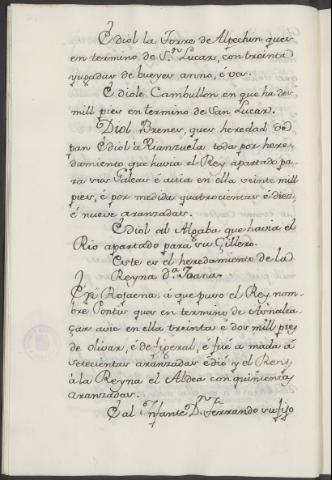 É diol la Torre de Alpechin que es
en termino de S.n Lucar, con treinta
yugadas de bueyes anno, é vez.
É diole Cambullon en que ha dez
mill pies en termino de San Lucar.
Diol Brenes, que es heredad de
pan É diol à Rianzuela toda por here-
damiento que havia el Rey apartado pa-
ra sus Galeas é avia en ella veinte mill
pies, é por medida quatrocientas é diez
é nueve aranzadas.
É diol al Algaba que havia el
Rio apartado para su Gillero.
Este es el heredamiento de la
Reyna d.a Joana.
Rosaena, à que puso el Rey nom-
bre Pontis que es en termino de Aznalca-
zar avie en ella treinta é dos mill pies
de olivar, é de figueral, é fué a mada à
setecientas aranzadas é dió y el Rey
à la Reyna el Aldea con quinientas
aranzadas.
É al Infante D.n Ferrando su fijo